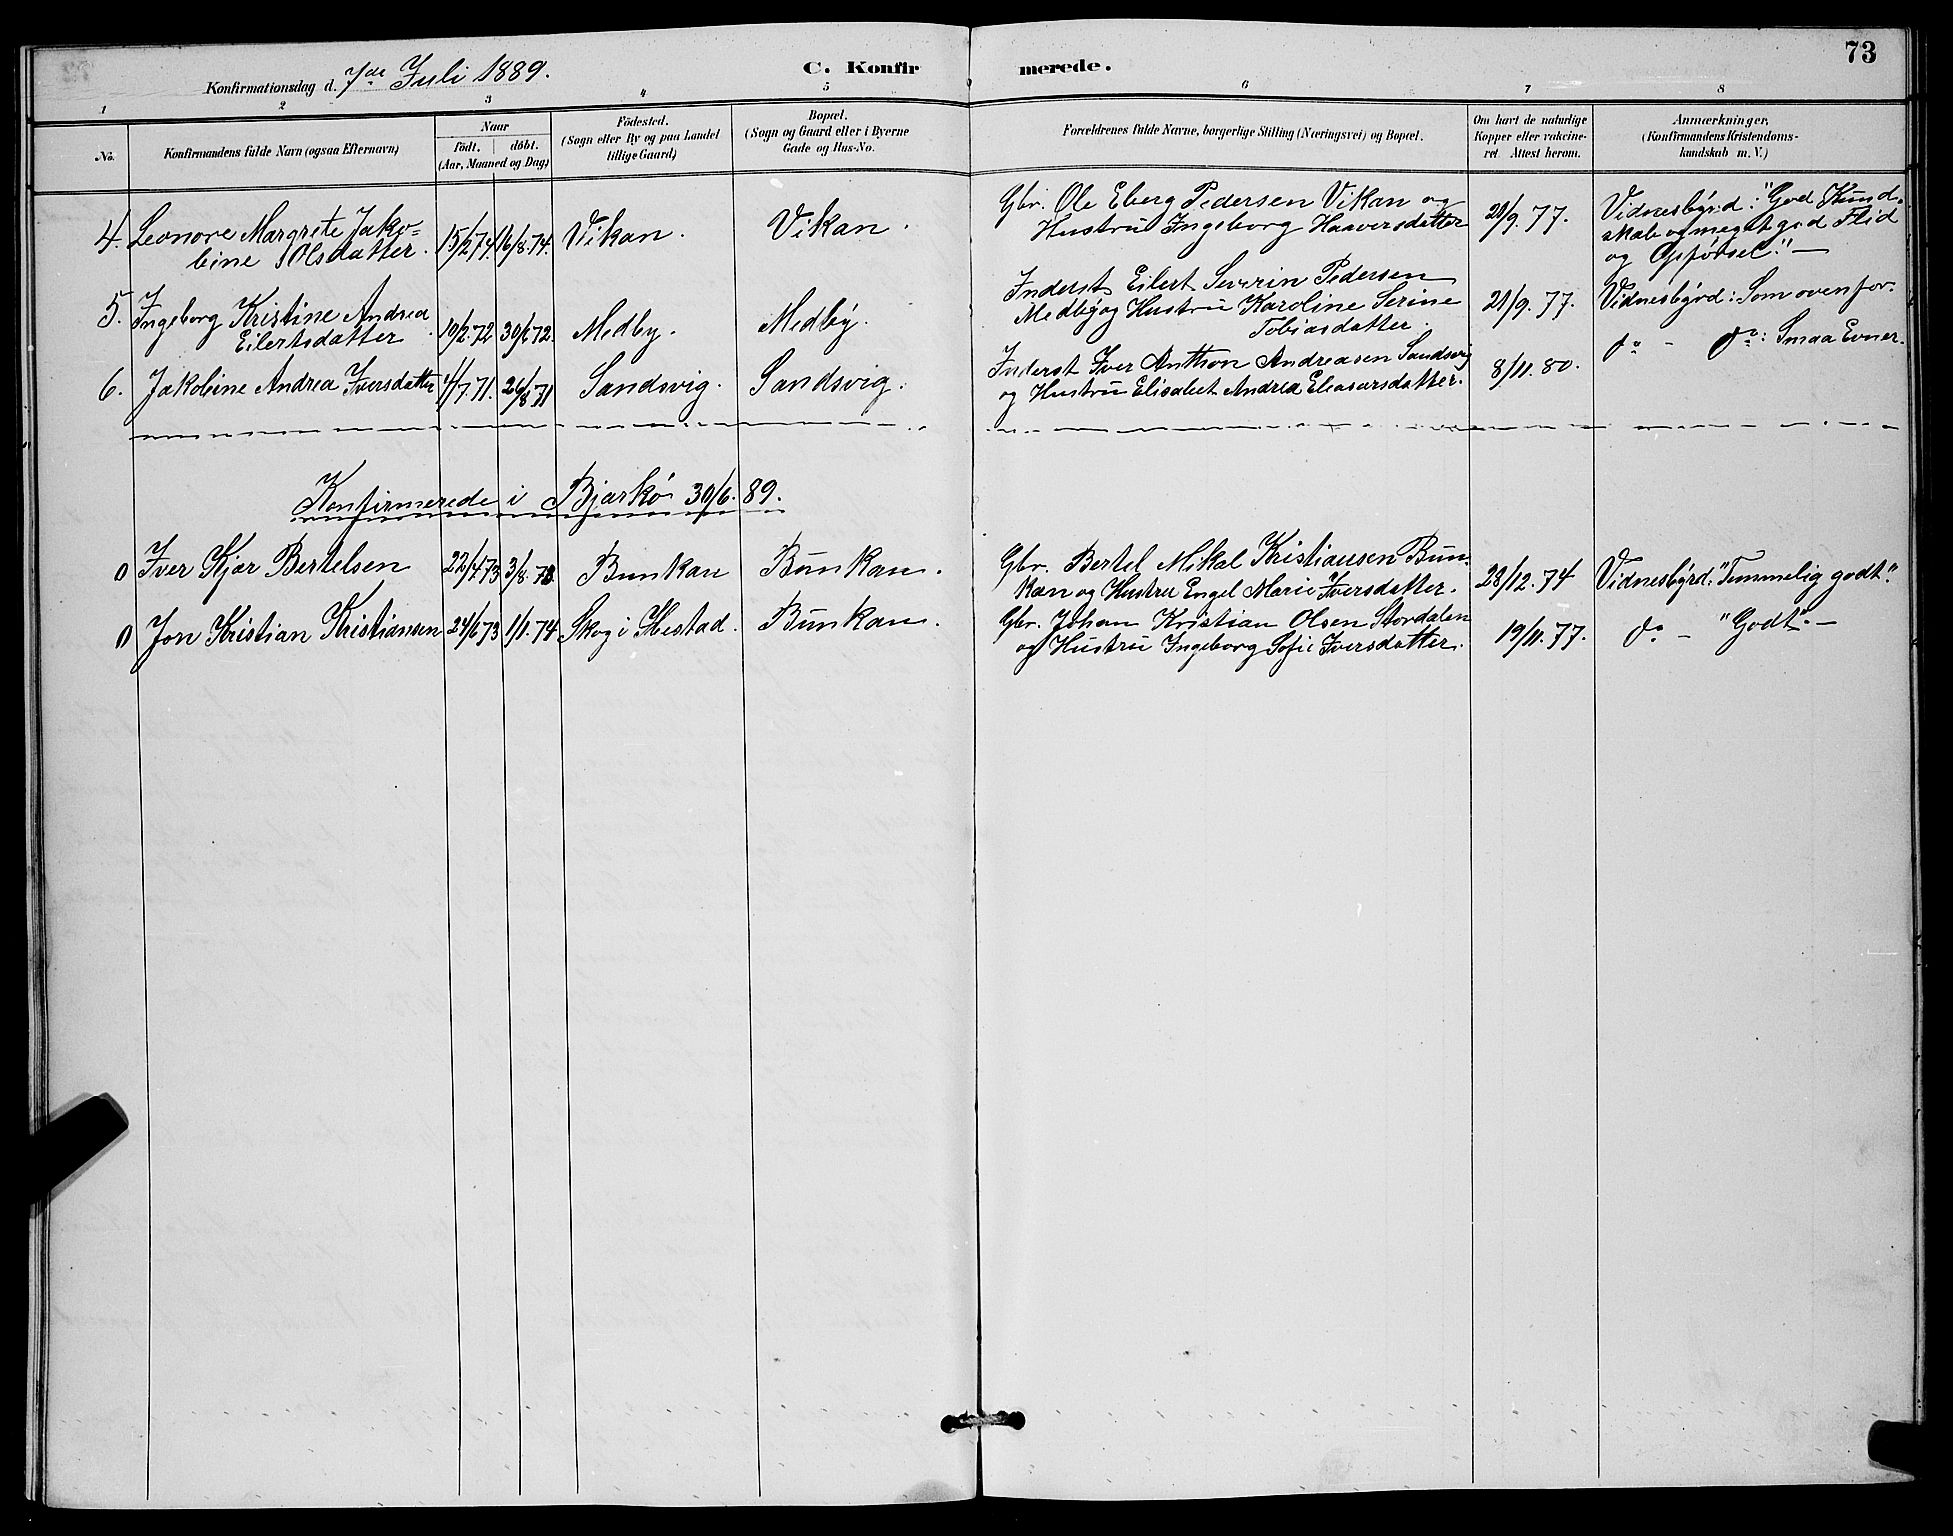 73
Konfirmationsdag d. 7de Juli 1889.
C. Konfirmerede.
1 2 3 4 5 6 7 8
No.
Konfirmandens fulde Navn (ogsaa Efternavn)
Naar
födt. döbt.
(Aar, Maaned og Dag)
Födested.
(Sogn eller By og paa Landet
tillige Gaard)
Bopæl.
(Sogn og Gaard eller i Byerne
Gade og Hus-No.
Forældrenes fulde Navne, borgerlige Stilling (Næringsvei) og Bopæl.
Om havt de naturlige
Kopper eller vakcine-
ret Attest herom.
Anmærkninger,
(Konfirmandens Kristendoms-
kundskab m. V.)
4. Leonore Margrete Jako=
bine Olsdatter. 15/2 74 16/8.74. Vikan. Vikan.
Gbr. Ole Eberg Pedersen Vikan og
Hustru Ingeborg Haaversdatter
20/9.77.
Vidnesbyrd: "God Kund-
skab og meget god Flid
og Opförsel." —
5. Ingeborg Kristine Andrea
Eilertsdatter. 19/2.72 30/6 72. Medby. Medby.
Inderst Eilert Severin Pedersen
Medby og Hustru Karoline Serine
Tobiasdatter.
21/9.77.
Vidnesbyrd: Som ovenfor.
6. Jakobine Andrea Iversdatter 4/7.71. 26/8 71 Sandsvig. Sandsvig.
Inderst Iver Anthon Andreasen Sandsvig
og Hustru Elisabet Andrea Eleasarsdatter.
8/11.80.
do - do: Smaa Evner.
Konfirmerede i Bjarkö 30/6.89.
0 Iver Kjær Bertelsen 22/4 73 3/8.73. Bunkan Bunkan.
Gbr. Bertel Mikal Kristiansen Bun-
kan og Hustru Engel Marie Iversdatter.
28/12.74
Vidnesbyrd: "Temmelig godt".
0 Jon Kristian Kristiansen 24/6 73 1/1.74 Skog i Ibestad. Bunkan.
Gbr. Johan Kristian Olsen Stordalen
og Hustru Ingeborg Sofie Iversdatter.
19/11.77.
do - "Godt". —